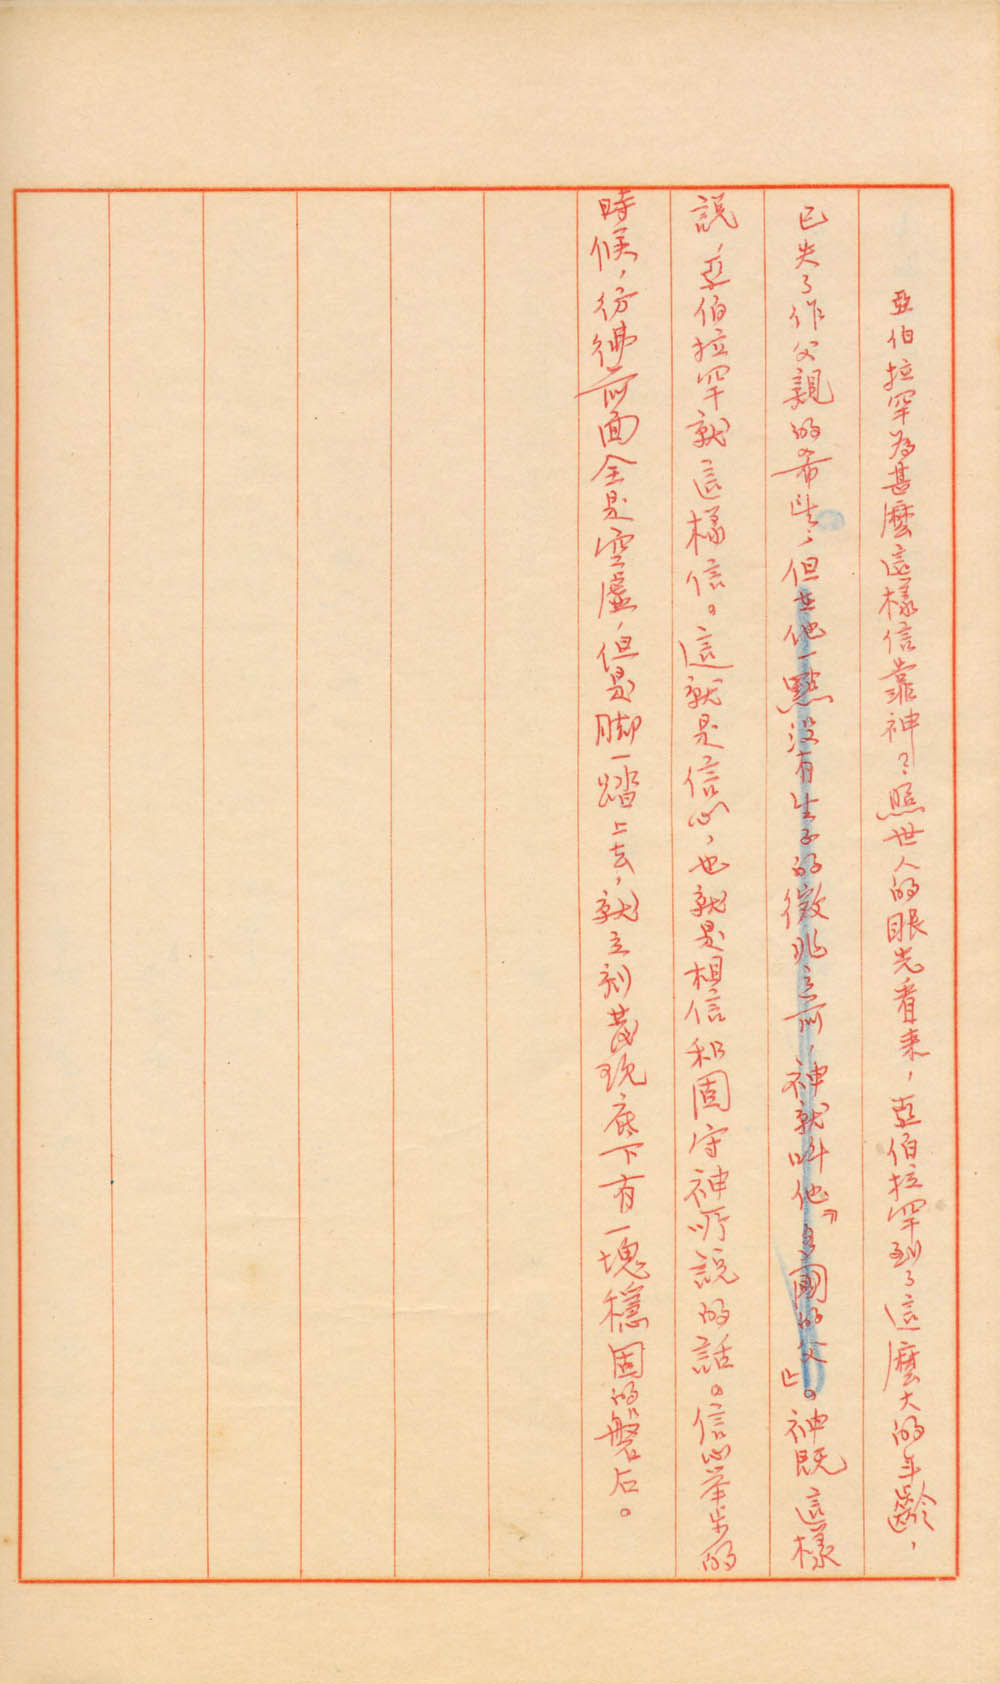 亞伯拉罕為甚麼這樣信靠神？照世人的眼光看來，亞伯拉罕到了這麼大的年齡，
已失了作父親的希望，但在他一點沒有生子的徵兆之前，神就叫他『多國的父』。神既這樣
說，亞伯拉罕就這樣信。這就是信心，也就是相信和固守神所說的話。信心举步的
時候，彷彿前面全是空虛，但是脚一踏上去，就立刻發現底下有一塊穩固的磐石。